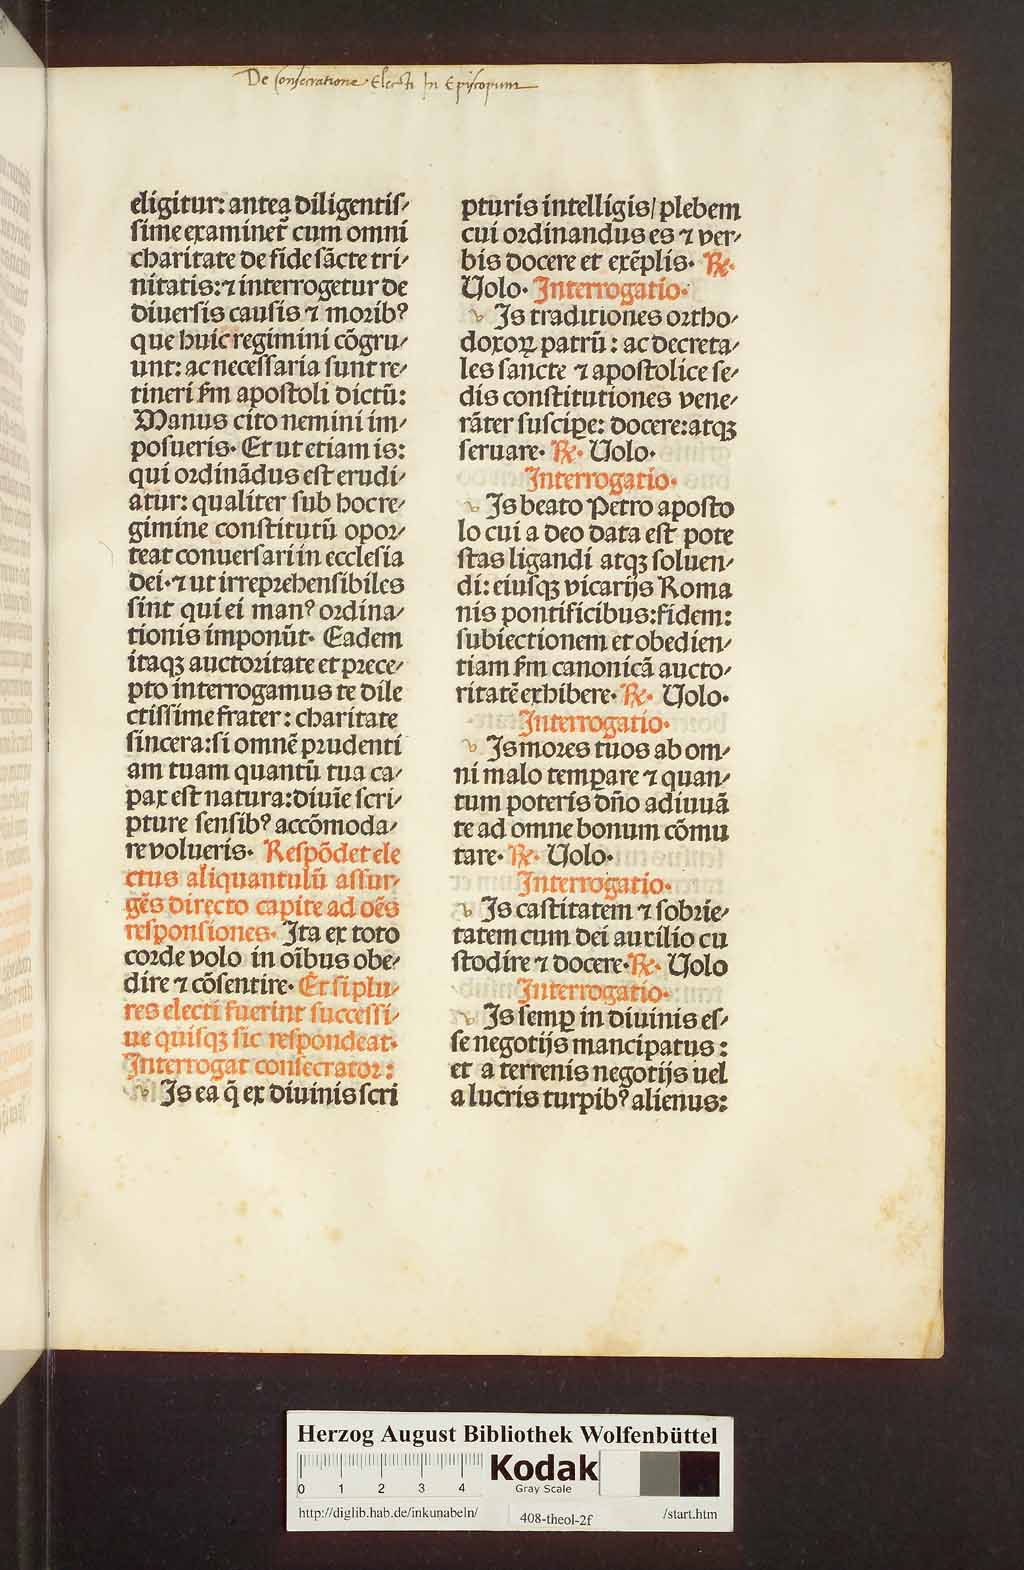 De Consecratione Electi In Episcopum
eligitur: antea diligentis⸗
sime examinet᷑ cum omni
charitate de fide sācte tri⸗
nitatis: ⁊ interrogetur de
diuersis causis ⁊ moribꝰ
que huic regimini cōgru⸗
unt: ac necessaria sunt re⸗
tineri ẜm apostoli dictū:
Manus cito nemini im⸗
posueris. Et ut etiam is:
qui ordinādus est erudi⸗
atur: qualiter sub hoc re⸗
gimine constitutū opor⸗
teat conuersari in ecclesia
dei. ⁊ ut irreprehensibiles
sint qui ei manꝰ ordina⸗
tionis imponūt. Eadem
itaqꝫ auctoritate et prece⸗
pto interrogamus te dile
ctissime frater: charitate
sincera: si omnē prudenti
am tuam quantū tua ca⸗
pax est natura: diuīe scri⸗
pture sensibꝰ accōmoda⸗
re volueris. Respōdet ele
ctus aliquantulū assur⸗
gēs directo capite ad oēs
responsiones. Ita ex toto
corde volo in oībus obe⸗
dire ⁊ cōsentire. Et si plu⸗
res electi fuerint successi⸗
ue quisqꝫ sic respondeat.
Interrogat consecrator:
v Is ea q̄ ex diuinis scri
pturis intelligis/ plebem
cui ordinandus es ⁊ ver⸗
bis docere et exēplis. ℞.
Uolo. Interrogatio.
v Is traditiones ortho⸗
doxoꝝ patrū: ac decreta⸗
les sancte ⁊ apostolice se⸗
dis constitutiones vene⸗
rāter suscipe: docere: atqꝫ
seruare. ℞. Uolo.
Interrogatio.
v Is beato Petro aposto
lo cui a deo data est pote
stas ligandi atqꝫ soluen⸗
di: eiusqꝫ vicarijs Roma
nis pontificibus: fidem:
subiectionem et obedien⸗
tiam ẜm canonicā aucto⸗
ritatē exhibere. ℞. Uolo.
Interrogatio.
v Is mores tuos ab om⸗
ni malo temꝑare ⁊ quan⸗
tum poteris dn̄o adiuuā
te ad omne bonum cōmu
tare. ℞. Uolo.
Interrogatio.
v Is castitatem ⁊ sobrie⸗
tatem cum dei auxilio cu
stodire ⁊ docere. ℞. Uolo
Interrogatio.
v Is semꝑ in diuinis es⸗
se negotijs mancipatus:
et a terrenis negotijs uel
a lucris turpibꝰ alienus:
Herzog August Bibliothek Wolfenbüttel
0 1 2 3 4
Kodak
Gray Scale
http://diglib.hab.de/inkunabeln/
408-theol-2f
/start.htm